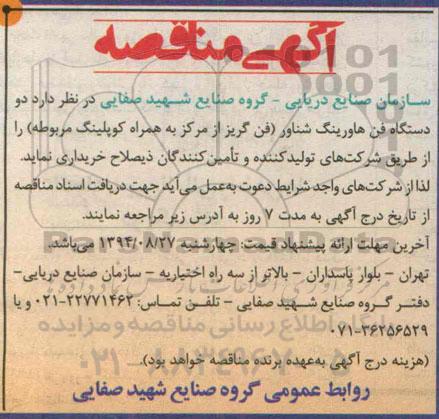 آگهی مناقصه
سازمان صنایع دریایی - گروه صنایع شهید صفایی در نظر دارد دو
دستگاه فن هاورینگ شناور (فن گریز از مرکز به همراه کوپلینگ مربوطه) را
از طریق شرکت‌های تولیدکننده و تأمین‌کنندگان ذیصلاح خریداری نماید.
لذا از شرکت‌های واجد شرایط دعوت به‌عمل می‌آید جهت دریافت اسناد مناقصه
از تاریخ درج آگهی به مدت ۷ روز به آدرس زیر مراجعه نمایند.
آخرین مهلت ارائه پیشنهاد قیمت: چهارشنبه ۱۳۹۴/۰۸/۲۷ می‌باشد.
تهران - بلوار پاسداران - بالاتر از سه راه اختیاریه - سازمان صنایع دریایی-
دفتر گروه صنایع شهید صفایی - تلفن تماس: ۲۲۷۷۱۴۶۲-۰۲۱ و یا
۳۶۲۵۶۵۲۹-۰۷۱
(هزینه درج آگهی به‌عهده برنده مناقصه خواهد بود).
روابط عمومی گروه صنایع شهید صفایی